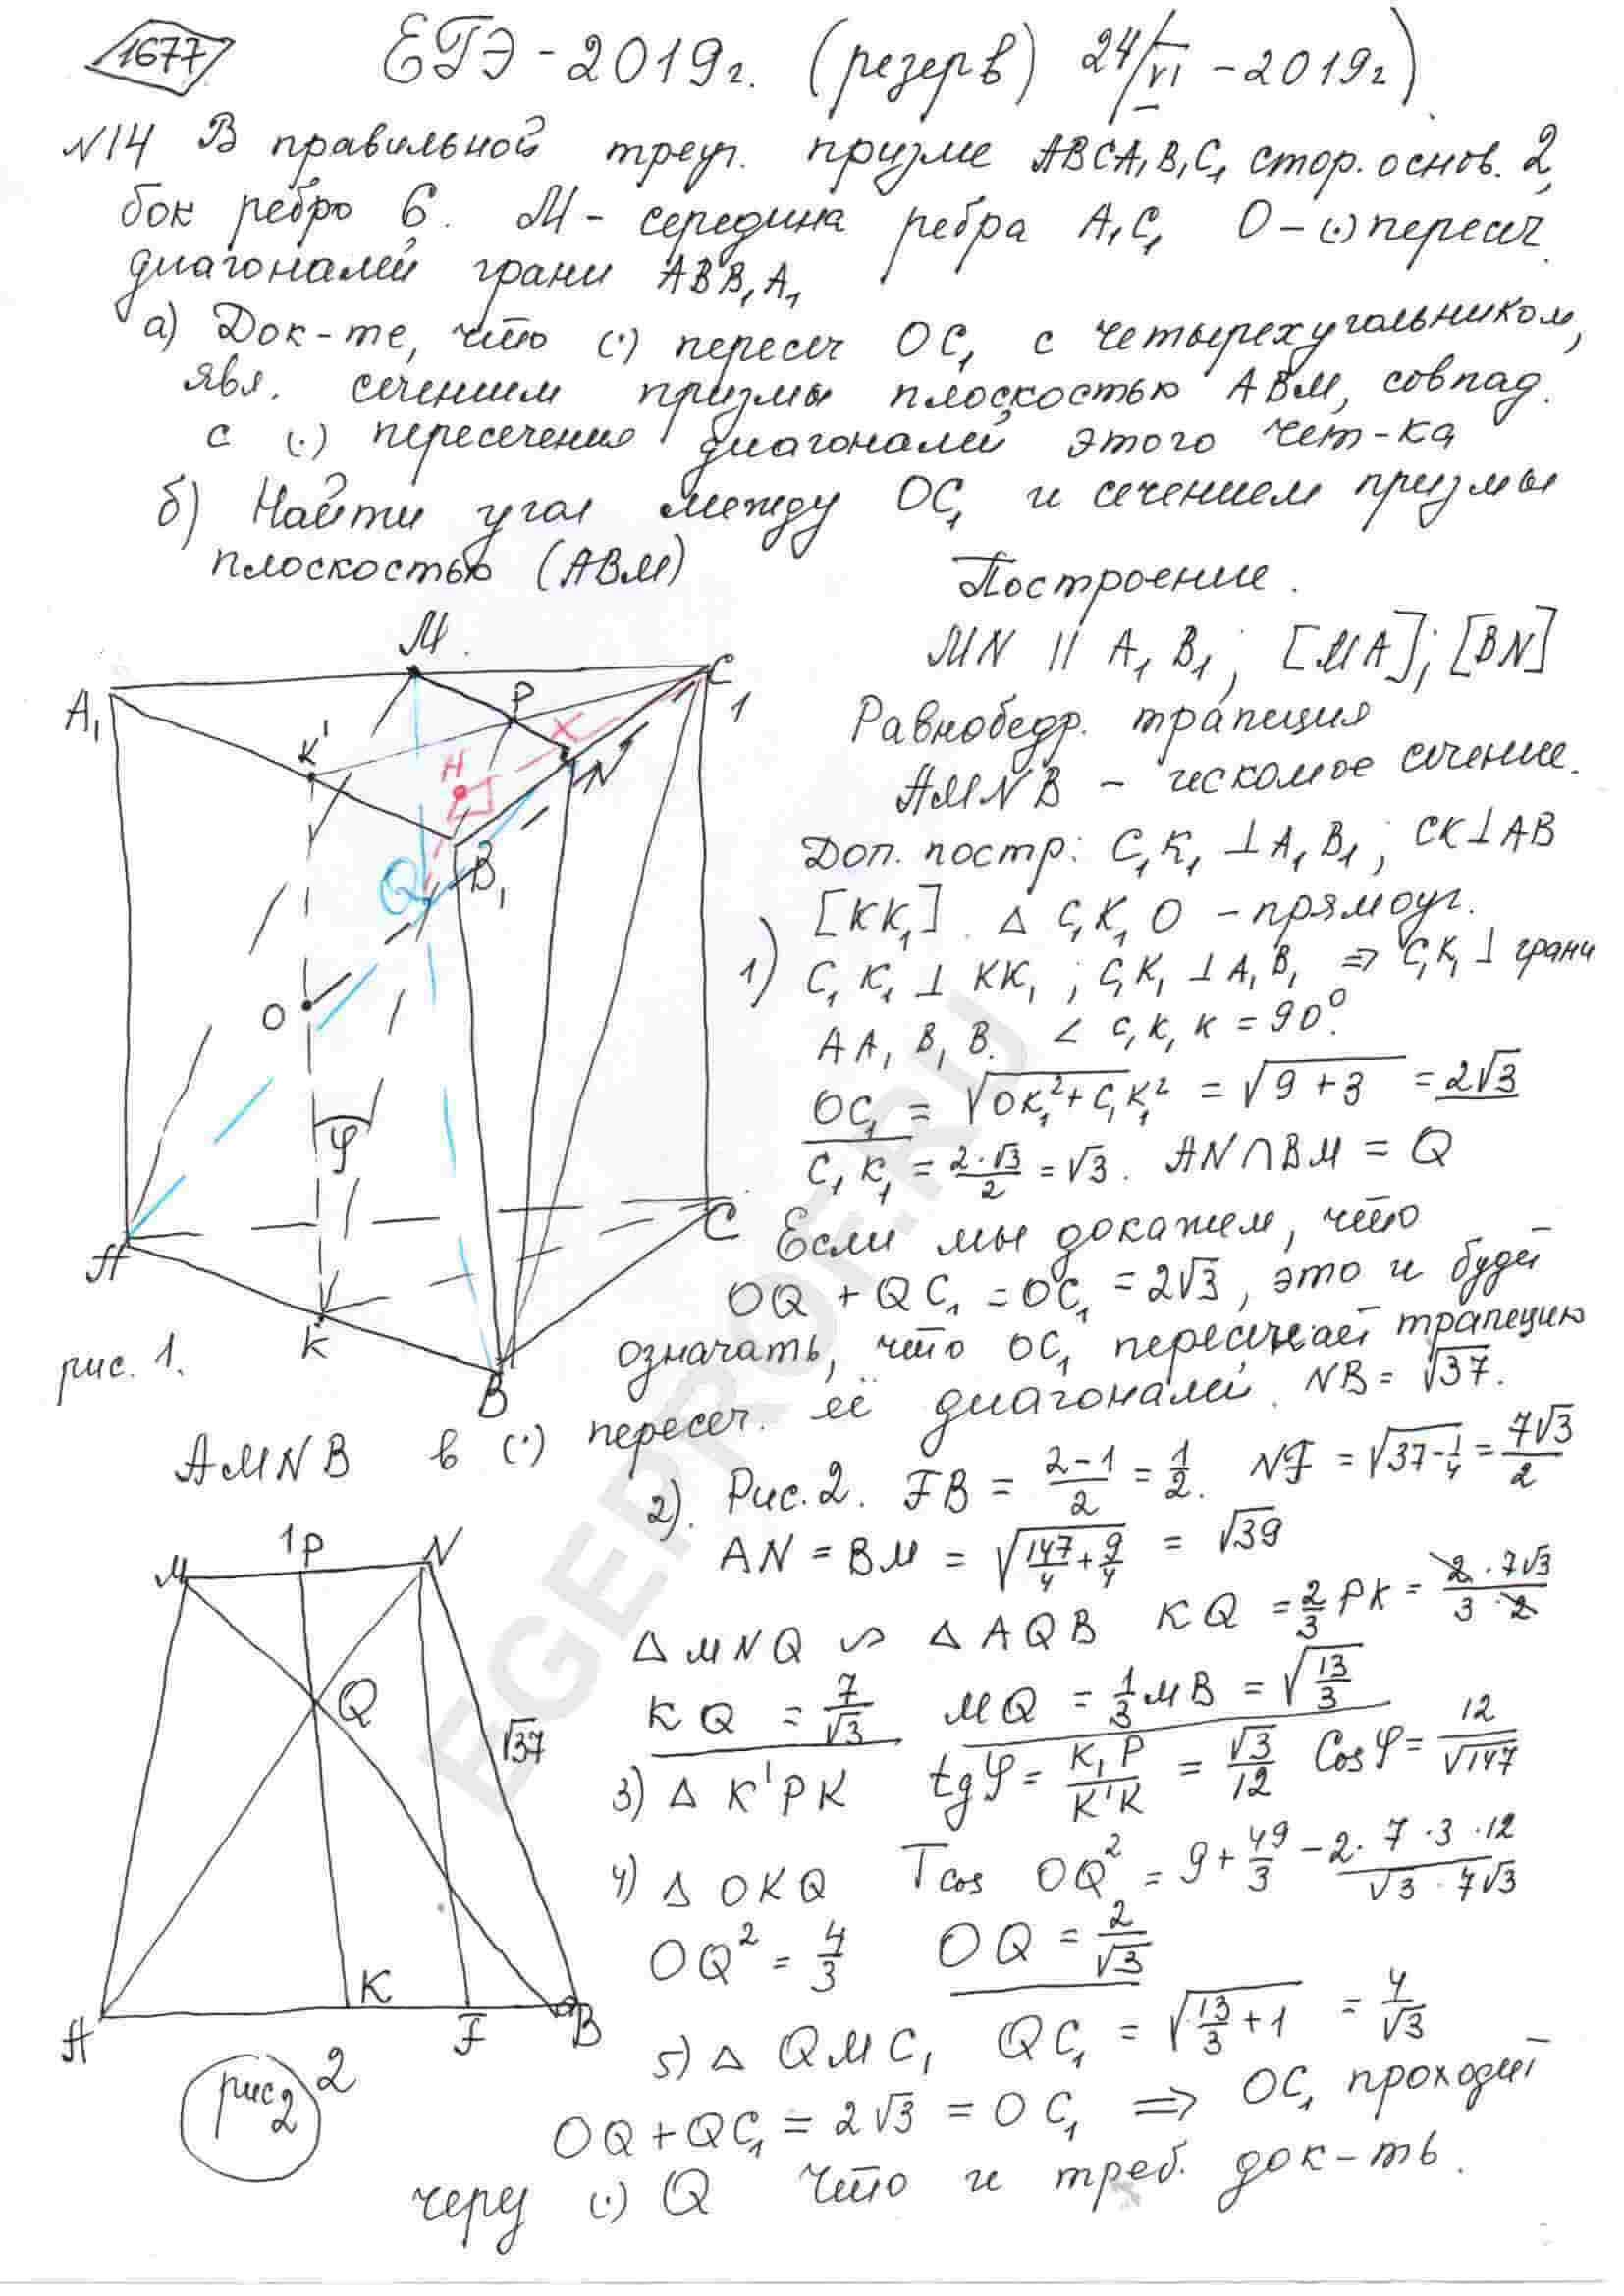 1677
ЕГЭ - 2019г. (резерв) 24/VI - 2019г)
№14 В правильной треуг. призме ABCA₁B₁C₁ стор. основ. 2,
бок ребро 6. M - середина ребра A₁C₁ O - (·) пересеч.
диагоналей грани ABB₁A₁
а) Док-те, что (·) пересеч OC₁ с четырехугольником,
явл. сечением призмы плоскостью ABM, совпад.
с (·) пересечения диагоналей этого чет-ка
б) Найти угол между OC₁ и сечением призмы
плоскостью (ABM)
Построение.
MN || A₁B₁; [MA]; [BN]
Равнобедр. трапеция
AMNB - искомое сечение.
Доп. постр: C₁K₁ ⊥ A₁B₁; CK ⊥ AB
[KK₁]. △ C₁K₁O - прямоуг.
1) C₁K₁ ⊥ KK₁; C₁K₁ ⊥ A₁B₁ ⇒ C₁K₁ ⊥ грани
AA₁B₁B. ∠ C₁K₁K = 90°.
OC₁ = √(OK₁² + C₁K₁²) = √(9 + 3) = 2√3
C₁K₁ = 2·√3/2 = √3. AN ∩ BM = Q
Если мы докажем, что
OQ + QC₁ = OC₁ = 2√3, это и будет
означать, что OC₁ пересекает трапецию
AMNB в (·) пересеч. её диагоналей. NB = √37.
A₁
M
C₁
K'
P
X
H
N
B₁
Q
O
φ
A
K
B
C
рис. 1.
2). Рис. 2. FB = (2-1)/2 = 1/2. NF = √(37 - 1/4) = 7√3/2
AN = BM = √(147/4 + 9/4) = √39
△ MNQ ∽ △ AQB KQ = 2/3 PK = 2·7√3/3·2
KQ = 7/√3 MQ = 1/3 MB = √(13/3)
3) △ K'PK tgφ = K₁P/K'K = √3/12 Cosφ = 12/√147
4) △ OKQ Tcos OQ² = 9 + 49/3 - 2·7·3·12/√3·7√3
OQ² = 4/3 OQ = 2/√3
5) △ QMC₁ QC₁ = √(13/3 + 1) = 4/√3
OQ + QC₁ = 2√3 = OC₁ ⇒ OC₁ проходит
через (·) Q что и треб. док-ть.
M
1
P
N
Q
√37
A
K
F
B
2
рис 2
EGEPROF.RU